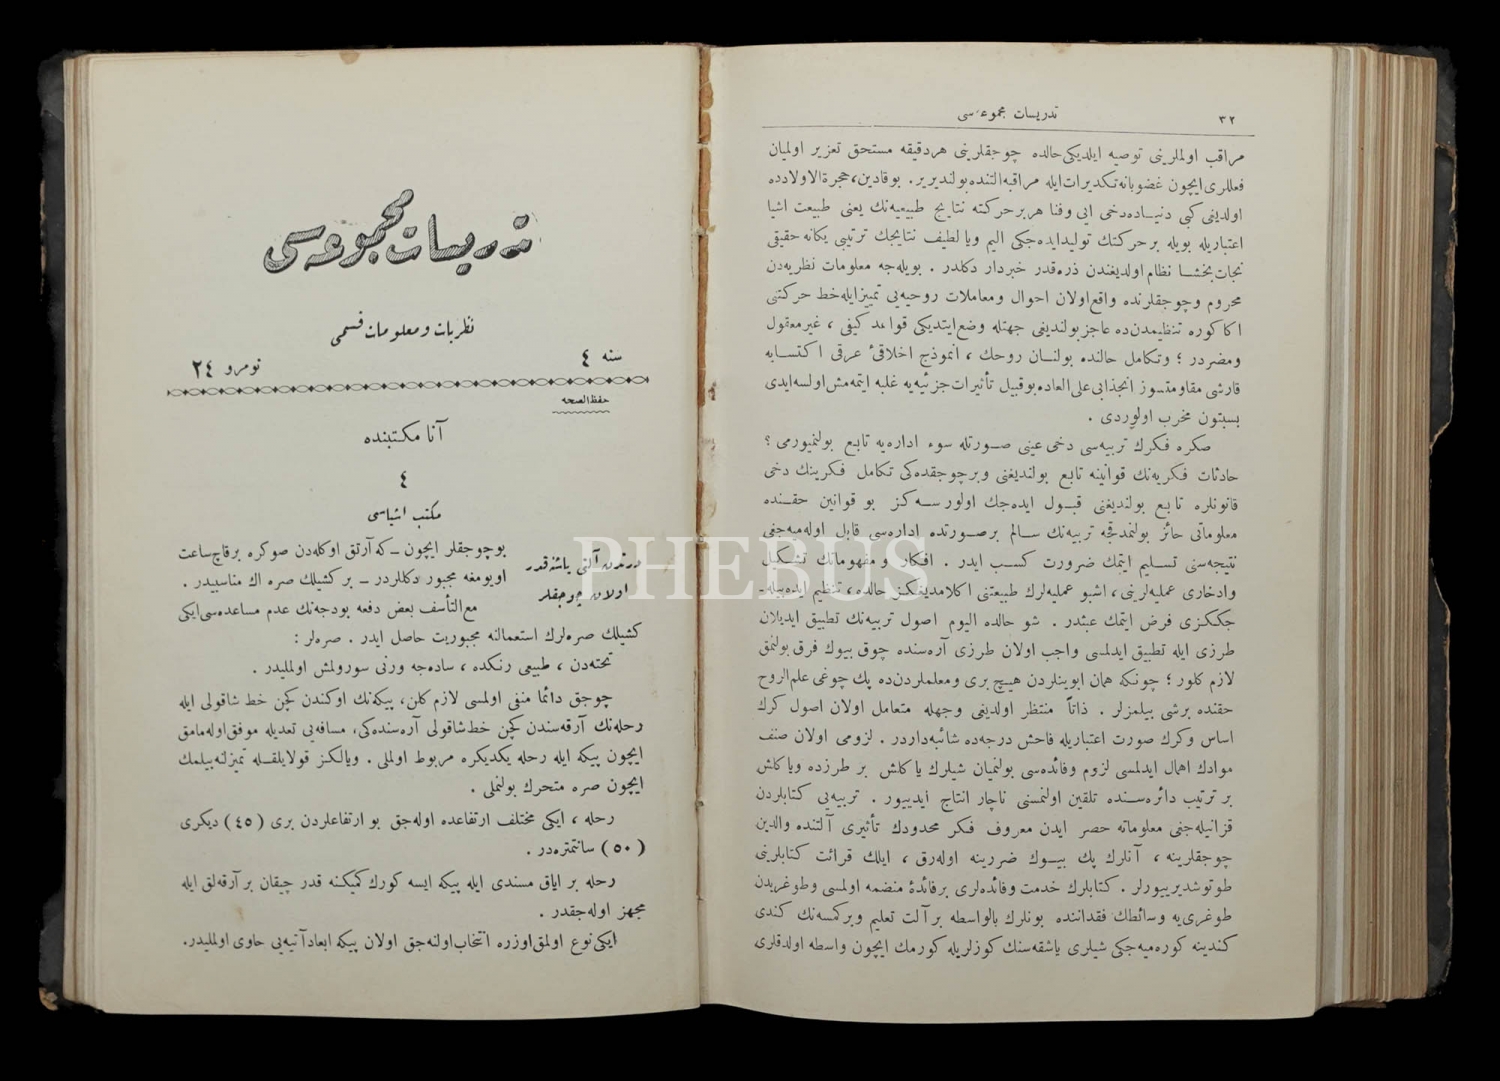 تدريسات مجموعه‌سی
نظريات و معلومات قسمی
سنه ٤
نومرو ٢٤
حفظ الصحه
آنا مكتبنده
٤
مكتب اشياسی
درتدن آلتی ياشنه قدر
اولان چوجقلر
بو چوجقلر ايچون ــ كه آرتق اوكله‌دن صوكره برقاچ ساعت
اويومغه مجبور دكللردر ــ بر كشيلك صره اك مناسبيدر .
مع التأسف بعض دفعه بودجه‌نك عدم مساعده‌سی ايكی
كشيلك صره‌لرك استعمالنه مجبوريت حاصل ايدر . صره‌لر :
تخته‌دن ، طبيعی رنكده ، ساده‌جه ورنی سورولمش اولمليدر .
چوجق دائما منفی اولمسی لازم كلن، پيكه‌نك اوكندن كچن خط شاقولی ايله
رحله‌نك آرقه‌سندن كچن خط شاقولی آره‌سنده‌كی، مسافه‌يی تعديله موفق اوله‌مامق
ايچون پيكه ايله رحله يكديكره مربوط اولملی . ويالكز قولايلقله تميزلنه‌بيلمك
ايچون صره متحرك بولنملی .
رحله ، ايكی مختلف ارتفاعده اوله‌جق بو ارتفاعلردن بری ( ٤٥ ) ديكری
( ٥٠ ) سانتمتره‌در .
رحله بر اياق مسندی ايله پيكه ايسه كورك كميكنه قدر چيقان بر آرقه‌لق ايله
مجهز اوله‌جقدر .
ايكی نوع اولمق اوزره انتخاب اولنه‌جق اولان پيكه ابعاد آتيه‌يی حاوی اولمليدر.
٣٢
تدريسات مجموعه‌سی
مراقب اولملرينی توصيه ايلديكی حالده چوجقلرينی هر دقيقه مستحق تعزير اولميان
فعللری ايچون غضوبانه تكديرات ايله مراقبه التنده بولنديرير. بو قادين، حجرة الاولادده
اولديغی كبی دنياده دخی ايی وفنا هر بر حركته نتايج طبيعيه‌نك يعنی طبيعت اشيا
اعتباريله بويله بر حركتك توليد ايده‌جكی اليم ويا لطيف نتايجك ترتيبی يكانه حقيقی
نجات بخشا نظام اولديغندن ذره قدر خبردار دكلدر . بويله‌جه معلومات نظريه‌دن
محروم وچوجقلرنده واقع اولان احوال ومعاملات روحيه‌يی تمييز ايله خط حركتنی
اكا كوره تنظيمدن ده عاجز بولنديغی جهتله وضع ايتديكی قواعد كيفی ، غير معقول
ومضردر ؛ وتكامل حالنده بولنان روحك ، انموذج اخلاقیٔ عرقی اكتسابه
قارشی مقاومتسوز انجذابی علی العاده بو قبيل تأثيرات جزئيه‌يه غلبه ايتمه‌مش اولسه ايدی
بسبتون مخرب اولوردی .
صكره فكرك تربيه‌سی دخی عينی صورتله سوء اداره‌يه تابع بولنميورمی ؟
حادثات فكريه‌نك قوانينه تابع بولنديغنی وبر چوجقده‌كی تكامل فكرينك دخی
قانونلره تابع بولنديغنی قبول ايده‌جك اولورسه‌كز بو قوانين حقنده
معلوماتی حائز بولنمدقجه تربيه‌نك سالم بر صورتده اداره‌سی قابل اوله‌ميه‌جغی
نتيجه‌سنی تسليم ايتمك ضرورت كسب ايدر . افكار ومفهوماتك تشكيل
وادخاری عمليه‌لرينی ، اشبو عمليه‌لرك طبيعتنی اكلامديغكز حالده ، تنظيم ايده‌بيله-
جككزی فرض ايتمك عبثدر . شو حالده اليوم اصول تربيه‌نك تطبيق ايديلان
طرزی ايله تطبيق ايدلمسی واجب اولان طرزی آره‌سنده چوق بيوك فرق بولنمق
لازم كلور ؛ چونكه همان ابويندن هيچ بری ومعلملردن ده پك چوغی علم الروح
حقنده برشی بيلمزلر . ذاتاً منتظر اولديغی وجهله متعامل اولان اصول كرك
اساس وكرك صورت اعتباريله فاحش درجه‌ده شائبه‌داردر . لزومی اولان صنف
موادك اهمال ايدلمسی لزوم وفائده‌سی بولنميان شيلرك ياكلش بر طرزده وياكلش
بر ترتيب دائره‌سنده تلقين اولنمسنی ناچار انتاج ايدييور . تربيه‌يی كتابلردن
قزانيله‌جق معلوماته حصر ايدن معروف فكر محدودك تأثيری آلتنده والدين
چوجقلرينه ، آنلرك پك بيوك ضررينه اوله‌رق ، ايلك قرائت كتابلرينی
طوتوشديرييورلر . كتابلرك خدمت وفائده‌لری بر فائدهٔ منضمه اولمسی وطوغريدن
طوغری‌يه وسائطك فقداننده بونلرك بالواسطه بر آلت تعليم وبر كمسه‌نك كندی
كندينه كوره‌ميه‌جكی شيلری باشقه‌سنك كوزلريله كورمك ايچون واسطه اولدقلری
PHEBUS